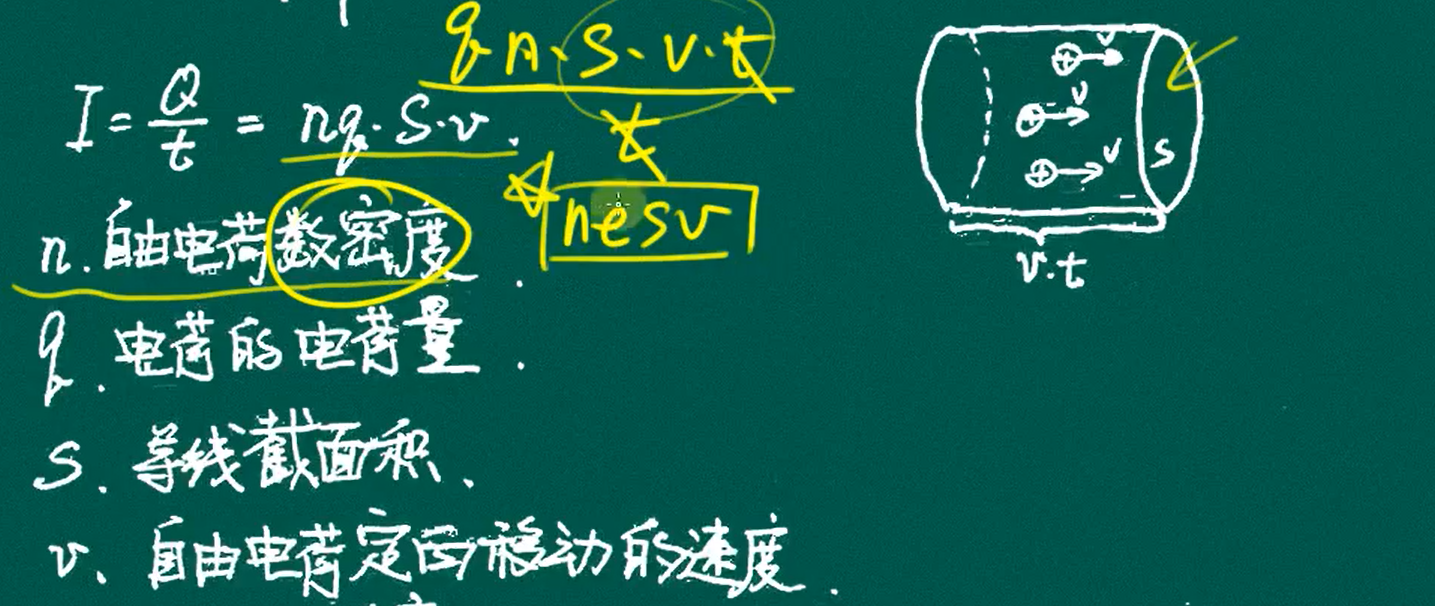 q n · S · v · t
t
I = Q/t = nq · S · v .
nesv
n. 自由电荷数密度 .
q. 电荷的电荷量 .
S. 导线截面积 .
v. 自由电荷定向移动的速度 .
v
v
v
S
v·t